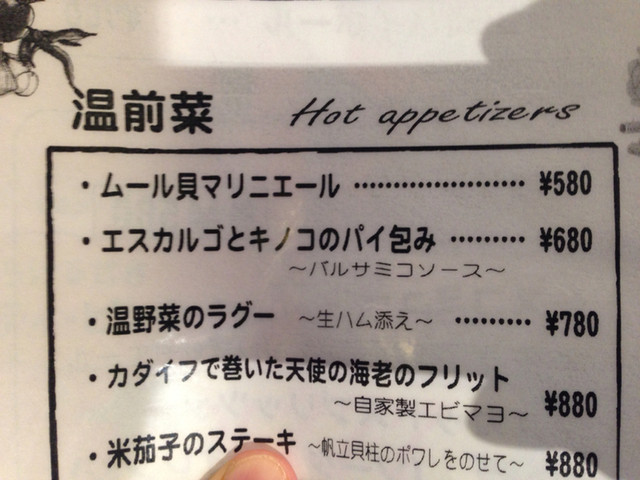 温前菜 Hot appetizers
・ムール貝マリニエール ………………… ¥580
・エスカルゴとキノコのパイ包み ………… ¥680
～バルサミコソース～
・温野菜のラグー ～生ハム添え～ ………… ¥780
・カダイフで巻いた天使の海老のフリット
～自家製エビマヨ～ ¥880
・米茄子のステーキ ～帆立貝柱のポワレをのせて～ ¥880